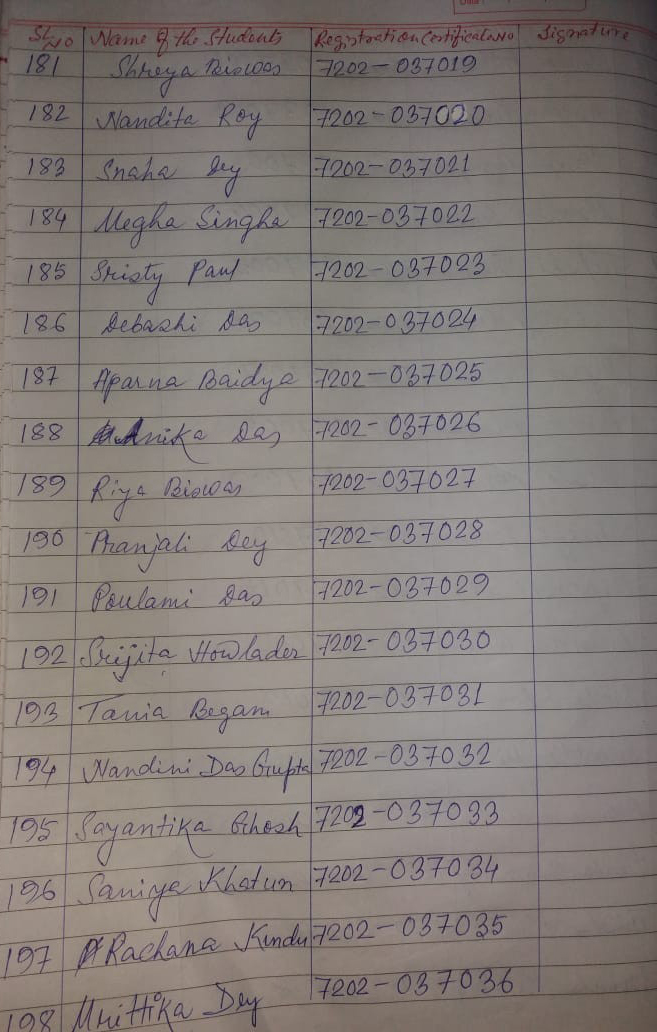 Date :
Sl. No Name of the Students Registration Certificate No Signature
181 Shreya Biswas 7202-037019
182 Nandita Roy 7202-037020
183 Snaha Dey 7202-037021
184 Megha Singha 7202-037022
185 Sristy Paul 7202-037023
186 Debashi Das 7202-037024
187 Aparna Baidya 7202-037025
188 Anika Das 7202-037026
189 Riya Biswas 7202-037027
190 Pranjali Dey 7202-037028
191 Poulami Das 7202-037029
192 Srijita Howlader 7202-037030
193 Tania Begam 7202-037031
194 Nandini Das Gupta 7202-037032
195 Sayantika Ghosh 7202-037033
196 Saniya Khatun 7202-037034
197 Rachana Kundu 7202-037035
198 Mrittika Dey 7202-037036